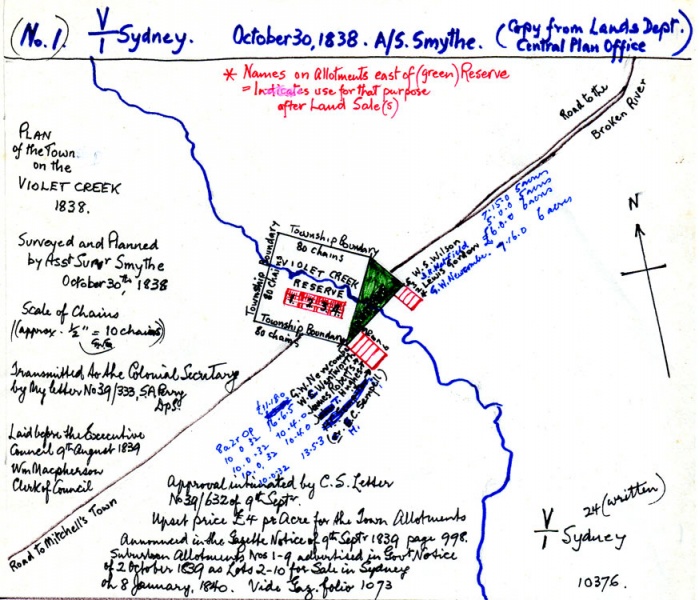 (No. 1) V/1 Sydney. October 30, 1838. A/S. Smythe. (Copy from Lands Dept.
Central Plan Office)
* Names on Allotments east of (green) Reserve
= Indicates use for that purpose
after Land Sale(s)
Road to the
Broken River
PLAN
of the Town
on the
VIOLET CREEK
1838.
Surveyed and Planned
by Asst Survr Smythe
October 30th, 1838
Scale of Chains
(approx. ½" = 10 chains)
Transmitted to the Colonial Secretary
by My letter No 39/333, SA Perry
D.S.G.
Laid before the Executive
Council 9th August 1839
Wm Macpherson
Clerk of Council
Road to Mitchell's Town
N
Township Boundary
80 chains
Township Boundary
80 Chains
VIOLET CREEK
RESERVE
1 2 3 4
Township Boundary
80 chains
W. S. Wilson
Lewis Gordon
G. W. Newcombe.
7.15.0 5 acres
5.0.0 5 acres
£6.0.0 6 acres
7.16.0 6 acres
G. W. Newcombe
W. C. Wentworth
(or E. C. Sempell)
£11.18.0
16.6.5
10.4.0
10.4.0
13.5.3
8a 2r 0p
10 0 32
10.0.32
10.0.32
10.0.32
Approval intimated by C.S. Letter
No 39/632 of 9th Septr.
Upset price £4 pr Acre for the Town Allotments
Announced in the Gazette Notice of 9th Septr 1839 page 998.
Suburban Allotments Nos 1-9 advertised in Govt Notice
of 2 October 1839 as Lots 2-10 for Sale in Sydney
on 8 January, 1840. Vide Gaz. folio 1073
24 (written)
V/1 Sydney
10376.